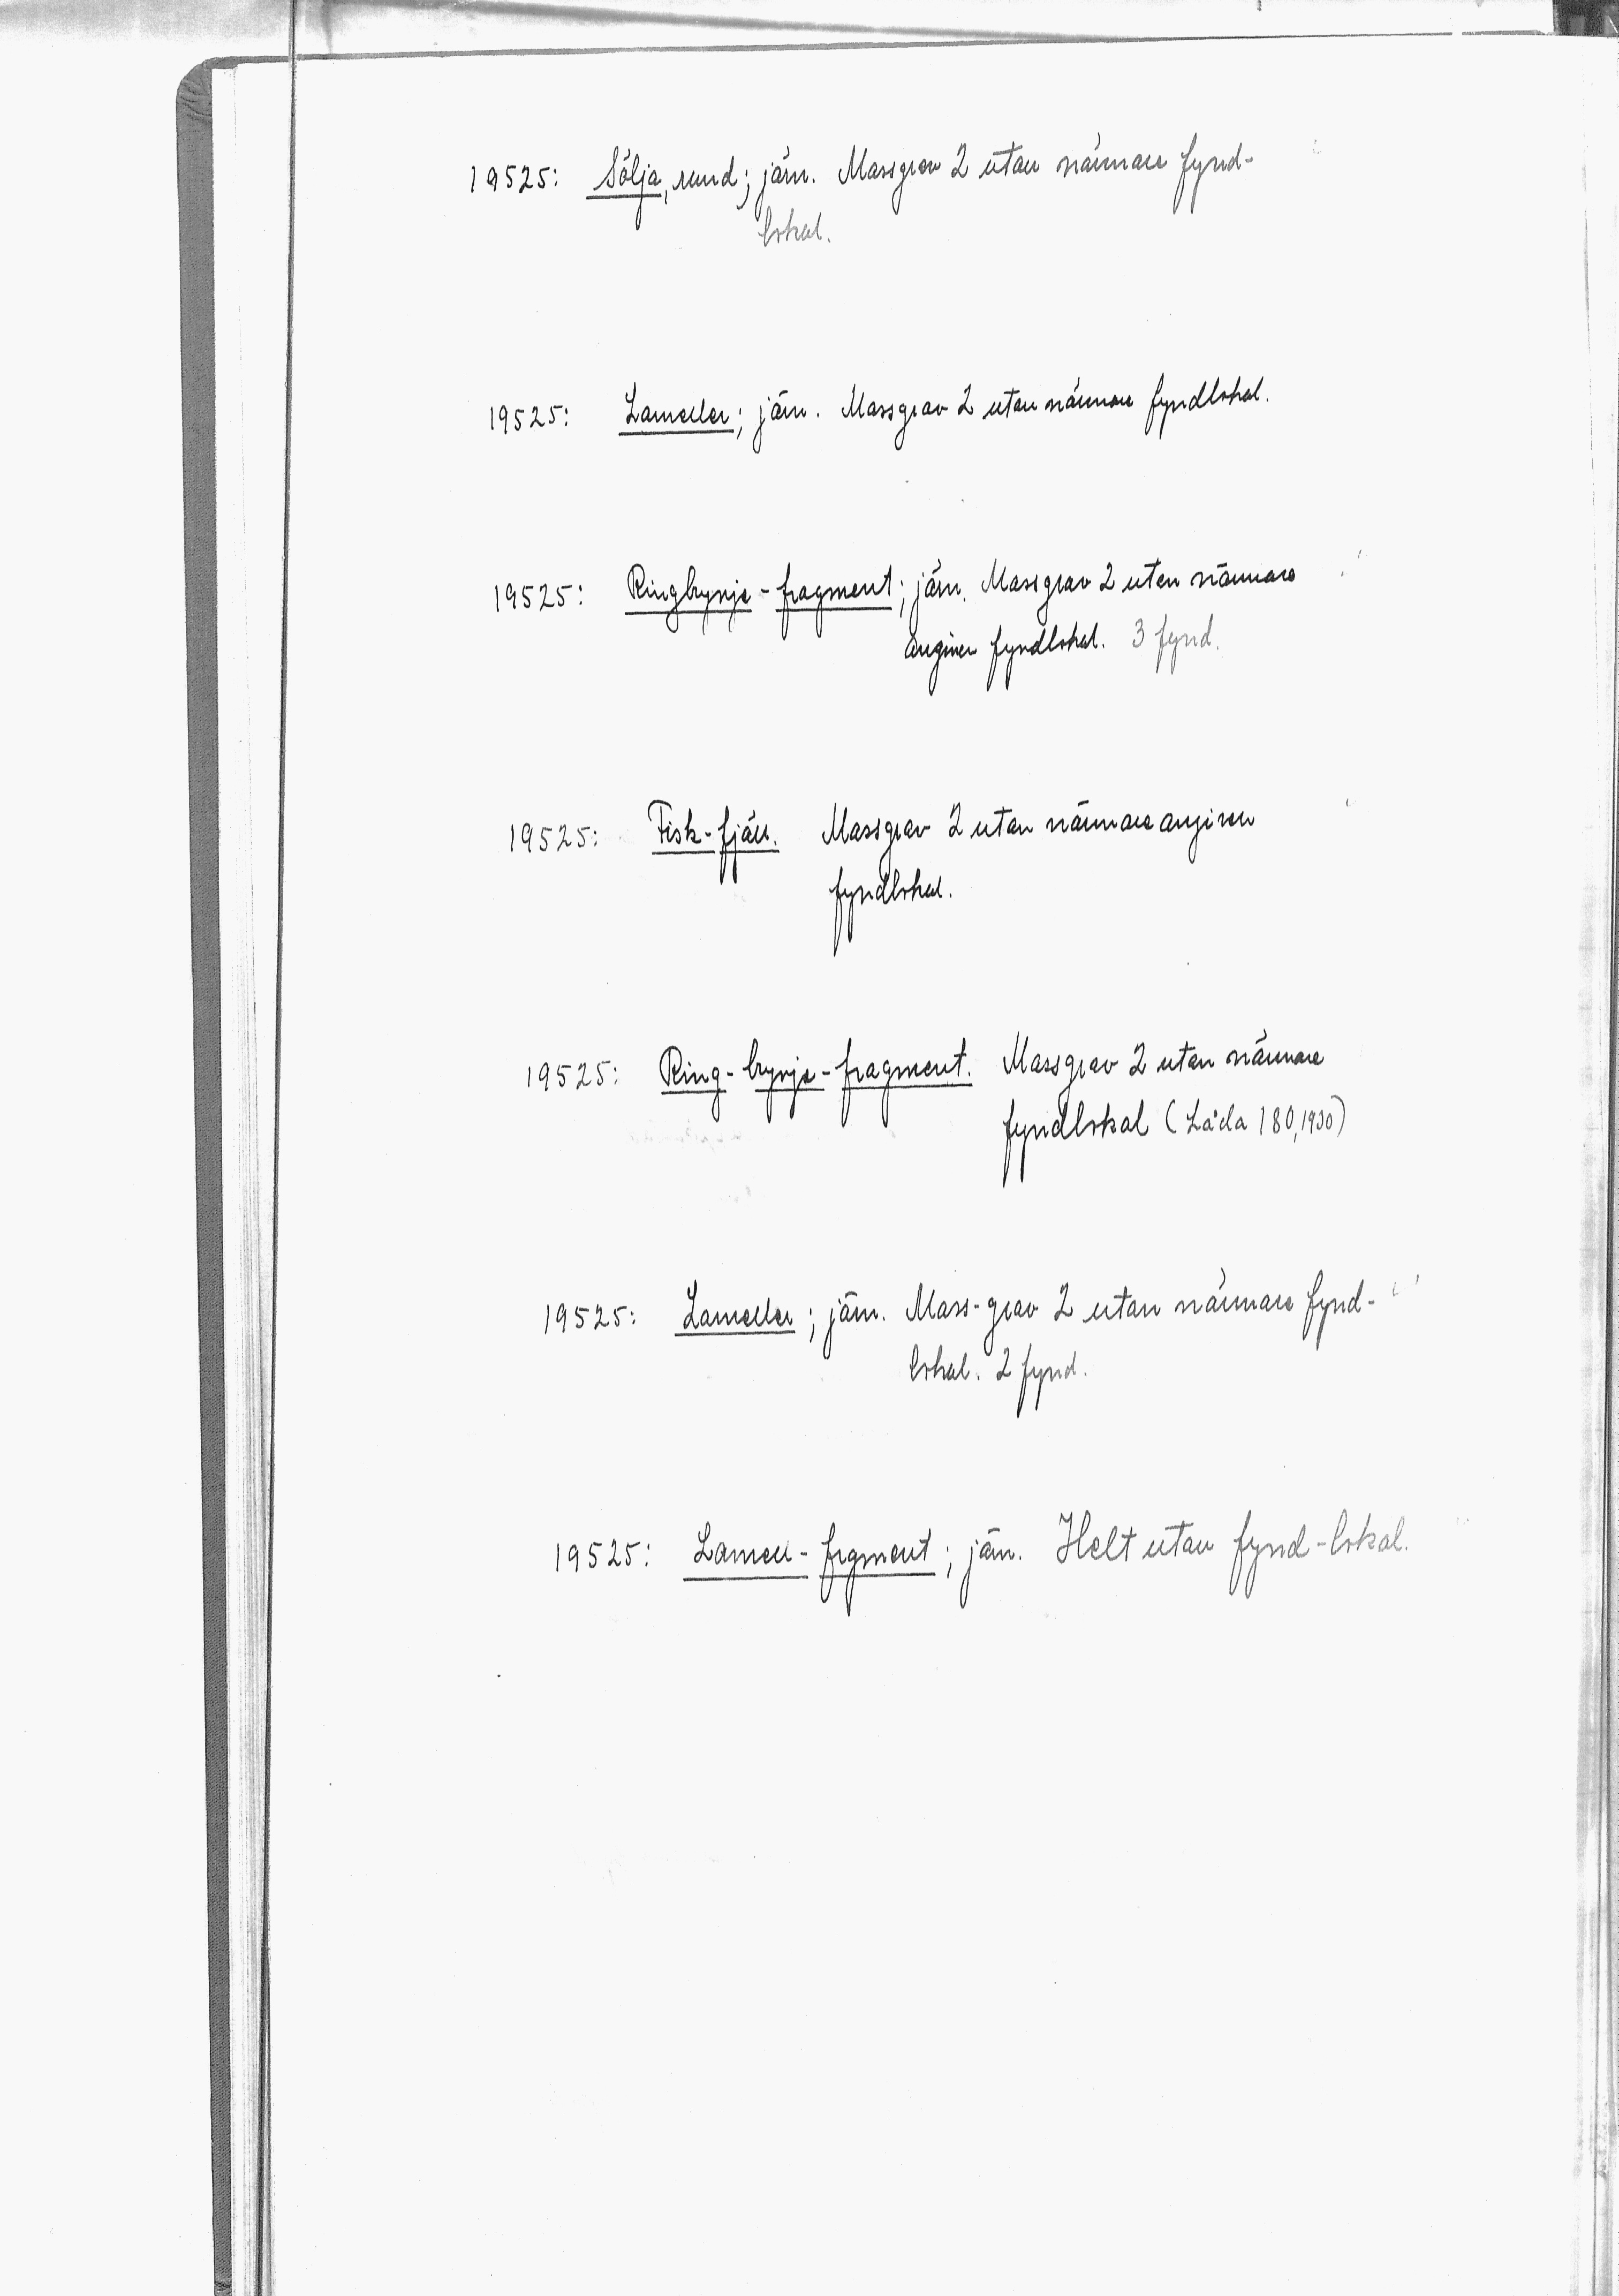 19525: Sölja, rund; järn. Massgrav 2 utan närmare fynd-
lokal.
19525: Lameller; järn. Massgrav 2 utan närmare fyndlokal.
19525: Ringbrynje-fragment; järn. Massgrav 2 utan närmare
angiven fyndlokal. 3 fynd.
19525: Fisk-fjäll. Massgrav 2 utan närmare angiven
fyndlokal.
19525: Ring-brynje-fragment. Massgrav 2 utan närmare
fyndlokal (Låda 180, 1930)
19525: Lameller; järn. Mass-grav 2 utan närmare fynd-
lokal. 2 fynd.
19525: Lamell-frgment; järn. Helt utan fynd-lokal.